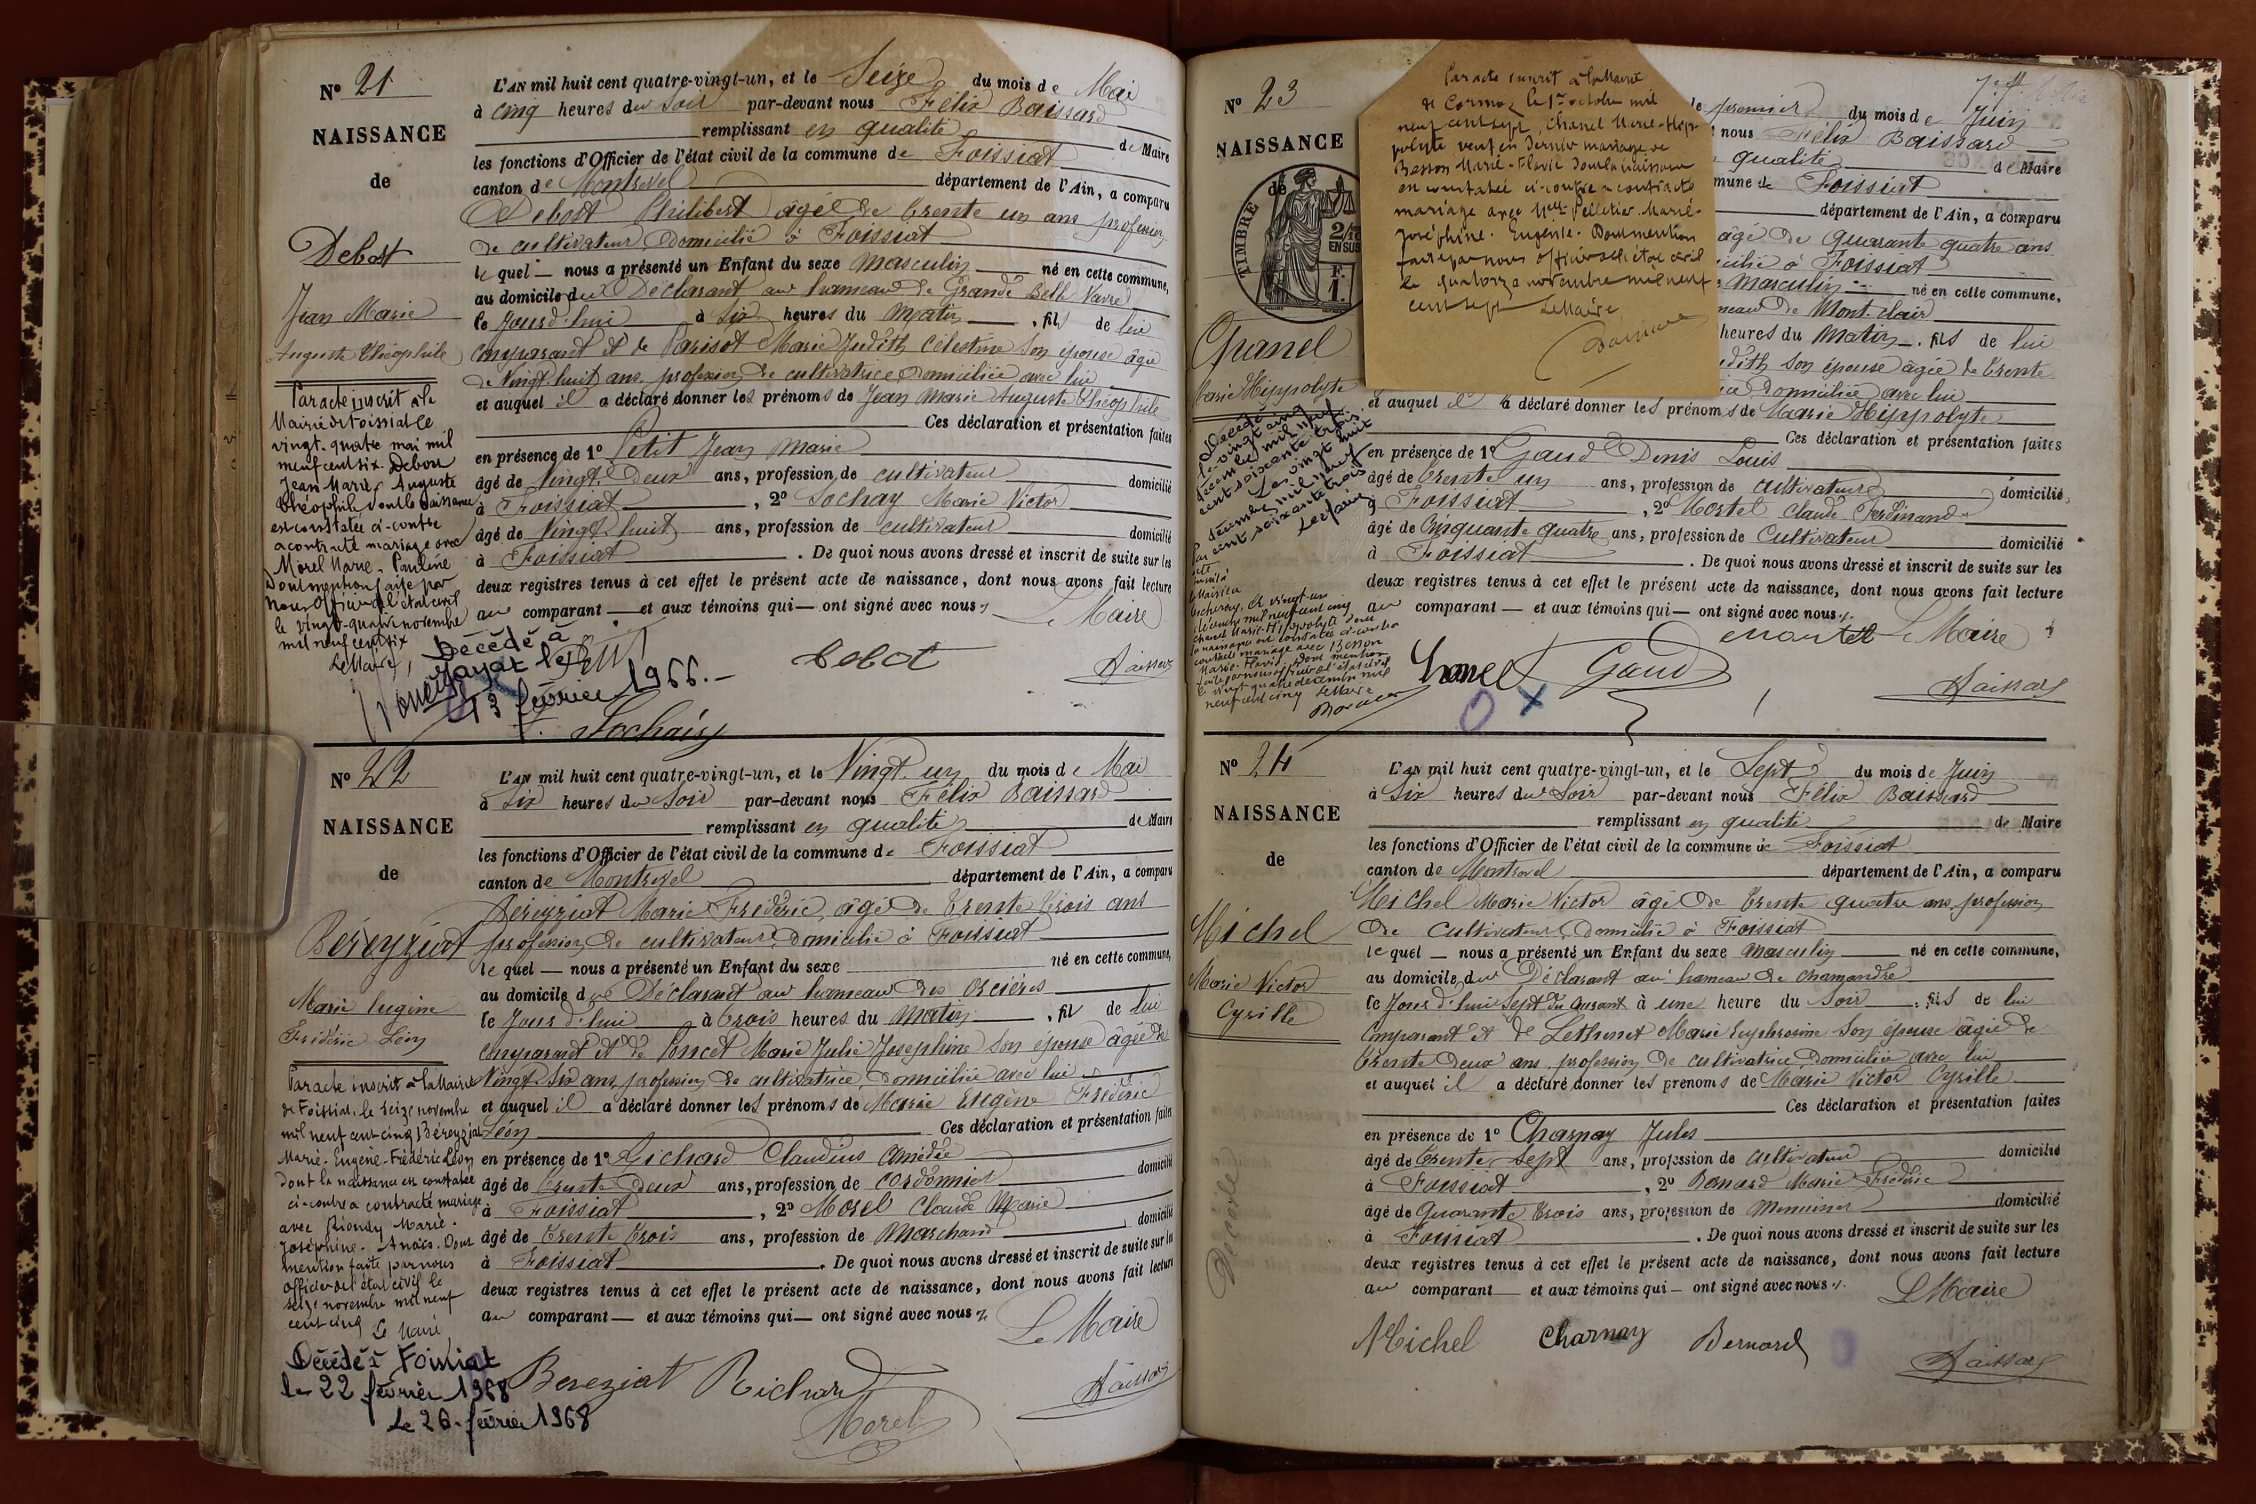 N° 21
NAISSANCE
de
Debost
Jean Marie
Auguste Théophile
Par acte inscrit à la
Mairie de Foissiat le
vingt-quatre mai mil
neuf cent six Debost
Jean Marie Auguste
Théophile dont la naissance
est constatée ci-contre
a contracté mariage avec
Morel Marie-Pauline
Dont mention faite par
Nous officier d'état civil
le vingt-quatre novembre
mil neuf cent six
Le Maire,
L'AN mil huit cent quatre-vingt-un, et le Seize du mois de Mai
à cinq heures du soir par-devant nous Félix Baissard
remplissant en qualité de Maire
les fonctions d'Officier de l'état civil de la commune de Foissiat
canton de Montrevel département de l'Ain, a comparu
Debost Philibert âgé de trente un ans profession
de cultivateur domicilié à Foissiat
lequel nous a présenté un Enfant du sexe masculin né en cette commune,
au domicile du Déclarant au hameau de Grande Belle Vavre
le Jourd'hui à six heures du matin, fils de lui
comparant et de Parisot Marie Judith Célestine son épouse âgée
de Vingt huit ans, profession de cultivatrice domiciliée avec lui
et auquel il a déclaré donner les prénoms de Jean Marie Auguste Théophile
Ces déclaration et présentation faites
en présence de 1° Petit Jean Marie
âgé de Vingt Deux ans, profession de cultivateur domicilié
à Foissiat, 2° Sochay Marie Victor
âgé de Vingt huit ans, profession de cultivateur domicilié
à Foissiat. De quoi nous avons dressé et inscrit de suite sur les
deux registres tenus à cet effet le présent acte de naissance, dont nous avons fait lecture
au comparant et aux témoins qui ont signé avec nous
Le Maire
Décédé à
Jayat le
13 février 1966.
Petit
Debot
Baissard
Sochay
N° 22
NAISSANCE
de
Béreyziat
Marie Eugène
Frédéric Léon
Par acte inscrit à la Mairie
de Foissiat, le seize novembre
mil neuf cent cinq Béreyziat
Marie-Eugène-Frédéric Léon
dont la naissance est constatée
ci-contre a contracté mariage
avec Riondy Marie-
Joséphine-Anaïs. Dont
mention faite par nous
officier de l'état civil le
seize novembre mil neuf
cent cinq Le Maire
Décédé à Foissiat
le 22 février 1968
Le 26 février 1968
L'AN mil huit cent quatre-vingt-un, et le Vingt un du mois de Mai
à Six heures du Soir par-devant nous Félix Baissard
remplissant en qualité de Maire
les fonctions d'Officier de l'état civil de la commune de Foissiat
canton de Montrevel département de l'Ain, a comparu
Béreyziat Marie Frédéric, âgé de trente trois ans
profession de cultivateur, domicilié à Foissiat
lequel nous a présenté un Enfant du sexe né en cette commune,
au domicile du Déclarant au hameau des Orcières
le Jour d'hui à trois heures du matin, fils de lui
comparant et de Poncet Marie Julie Josephine son épouse âgée de
Vingt Six ans, profession de cultivatrice, domiciliée avec lui
et auquel il a déclaré donner les prénoms de Marie Eugène Frédéric
Léon Ces déclaration et présentation faites
en présence de 1° Richard Claudius Amédée
âgé de trente Deux ans, profession de cordonnier domicilié
à Foissiat, 2° Morel Claude Marie
âgé de trente trois ans, profession de Marchand domicilié
à Foissiat. De quoi nous avons dressé et inscrit de suite sur les
deux registres tenus à cet effet le présent acte de naissance, dont nous avons fait lecture
au comparant et aux témoins qui ont signé avec nous
Le Maire
Bereziat Richard
Morel
Baissard
N° 23
NAISSANCE
de
TIMBRE
2/10
EN SUS
F.
1.
Chanel
Marie Hippolyte
Décédé
le vingt cinq
décembre mil neuf
cent soixante trois.
Le vingt huit
décembre mil neuf
cent soixante trois
Le Maire
Par acte inscrit à la Mairie
de Cormoz le 1er octobre mil
neuf cent sept, Chanel Marie-Hip-
polyte veuf en dernier mariage de
Besson Marie-Flavie dont la naissance
en constatée ci-contre a contracté
mariage avec Melle Pelletier Marie-
Joséphine-Eugénie-Dont mention
faite par nous officier de l'état civil
le quatorze novembre mil neuf
cent sept Le Maire
le premier du mois de Juin
nous Félix Baissard
qualité de Maire
mune de Foissiat
département de l'Ain, a comparu
âgé de quarante quatre ans
cilié à Foissiat
masculin né en cette commune,
meau de Mont-clair
heures du matin, fils de lui
dith son épouse âgée de trente
domiciliée avec lui
et auquel il a déclaré donner les prénoms de Marie Hippolyte
Ces déclaration et présentation faites
en présence de 1° Gaud Denis Louis
âgé de trente un ans, profession de cultivateur domicilié
à Foissiat, 2° Mortel Claude Ferdinand
âgé de Cinquante quatre ans, profession de Cultivateur domicilié
à Foissiat. De quoi nous avons dressé et inscrit de suite sur les
deux registres tenus à cet effet le présent acte de naissance, dont nous avons fait lecture
au comparant et aux témoins qui ont signé avec nous
mortel Le Maire
Chanel Gaud
Baissard
Chanel Marie-Hippolyte dont
la naissance est constatée ci-contre a
contracté mariage avec Besson
Marie-Flavie. Dont mention
faite par nous officier de l'état civil
le vingt quatre décembre mil
neuf cent cinq Le Maire
N° 24
NAISSANCE
de
Michel
Marie Victor
Cyrille
Décédé
L'AN mil huit cent quatre-vingt-un, et le Sept du mois de Juin
à Six heures du Soir par-devant nous Félix Baissard
remplissant en qualité de Maire
les fonctions d'Officier de l'état civil de la commune de Foissiat
canton de Montrevel département de l'Ain, a comparu
Michel Marie Victor âgé de trente quatre ans, profession
de Cultivateur, domicilié à Foissiat
lequel nous a présenté un Enfant du sexe masculin né en cette commune,
au domicile du Déclarant au hameau de chamandre
le Jour d'hui Sept du Courant à une heure du Soir, fils de lui
comparant et de Marie Euphrosine son épouse âgée de
trente deux ans, profession de cultivatrice domiciliée avec lui
et auquel il a déclaré donner les prénoms de Marie Victor Cyrille
Ces déclaration et présentation faites
en présence de 1° Charnay Jules
âgé de trente sept ans, profession de cultivateur domicilié
à Foissiat, 2° Bernard Marie Frédéric
âgé de quarante trois ans, profession de Menuisier domicilié
à Foissiat. De quoi nous avons dressé et inscrit de suite sur les
deux registres tenus à cet effet le présent acte de naissance, dont nous avons fait lecture
au comparant et aux témoins qui ont signé avec nous
Le Maire
Michel Charnay Bernard
Baissard